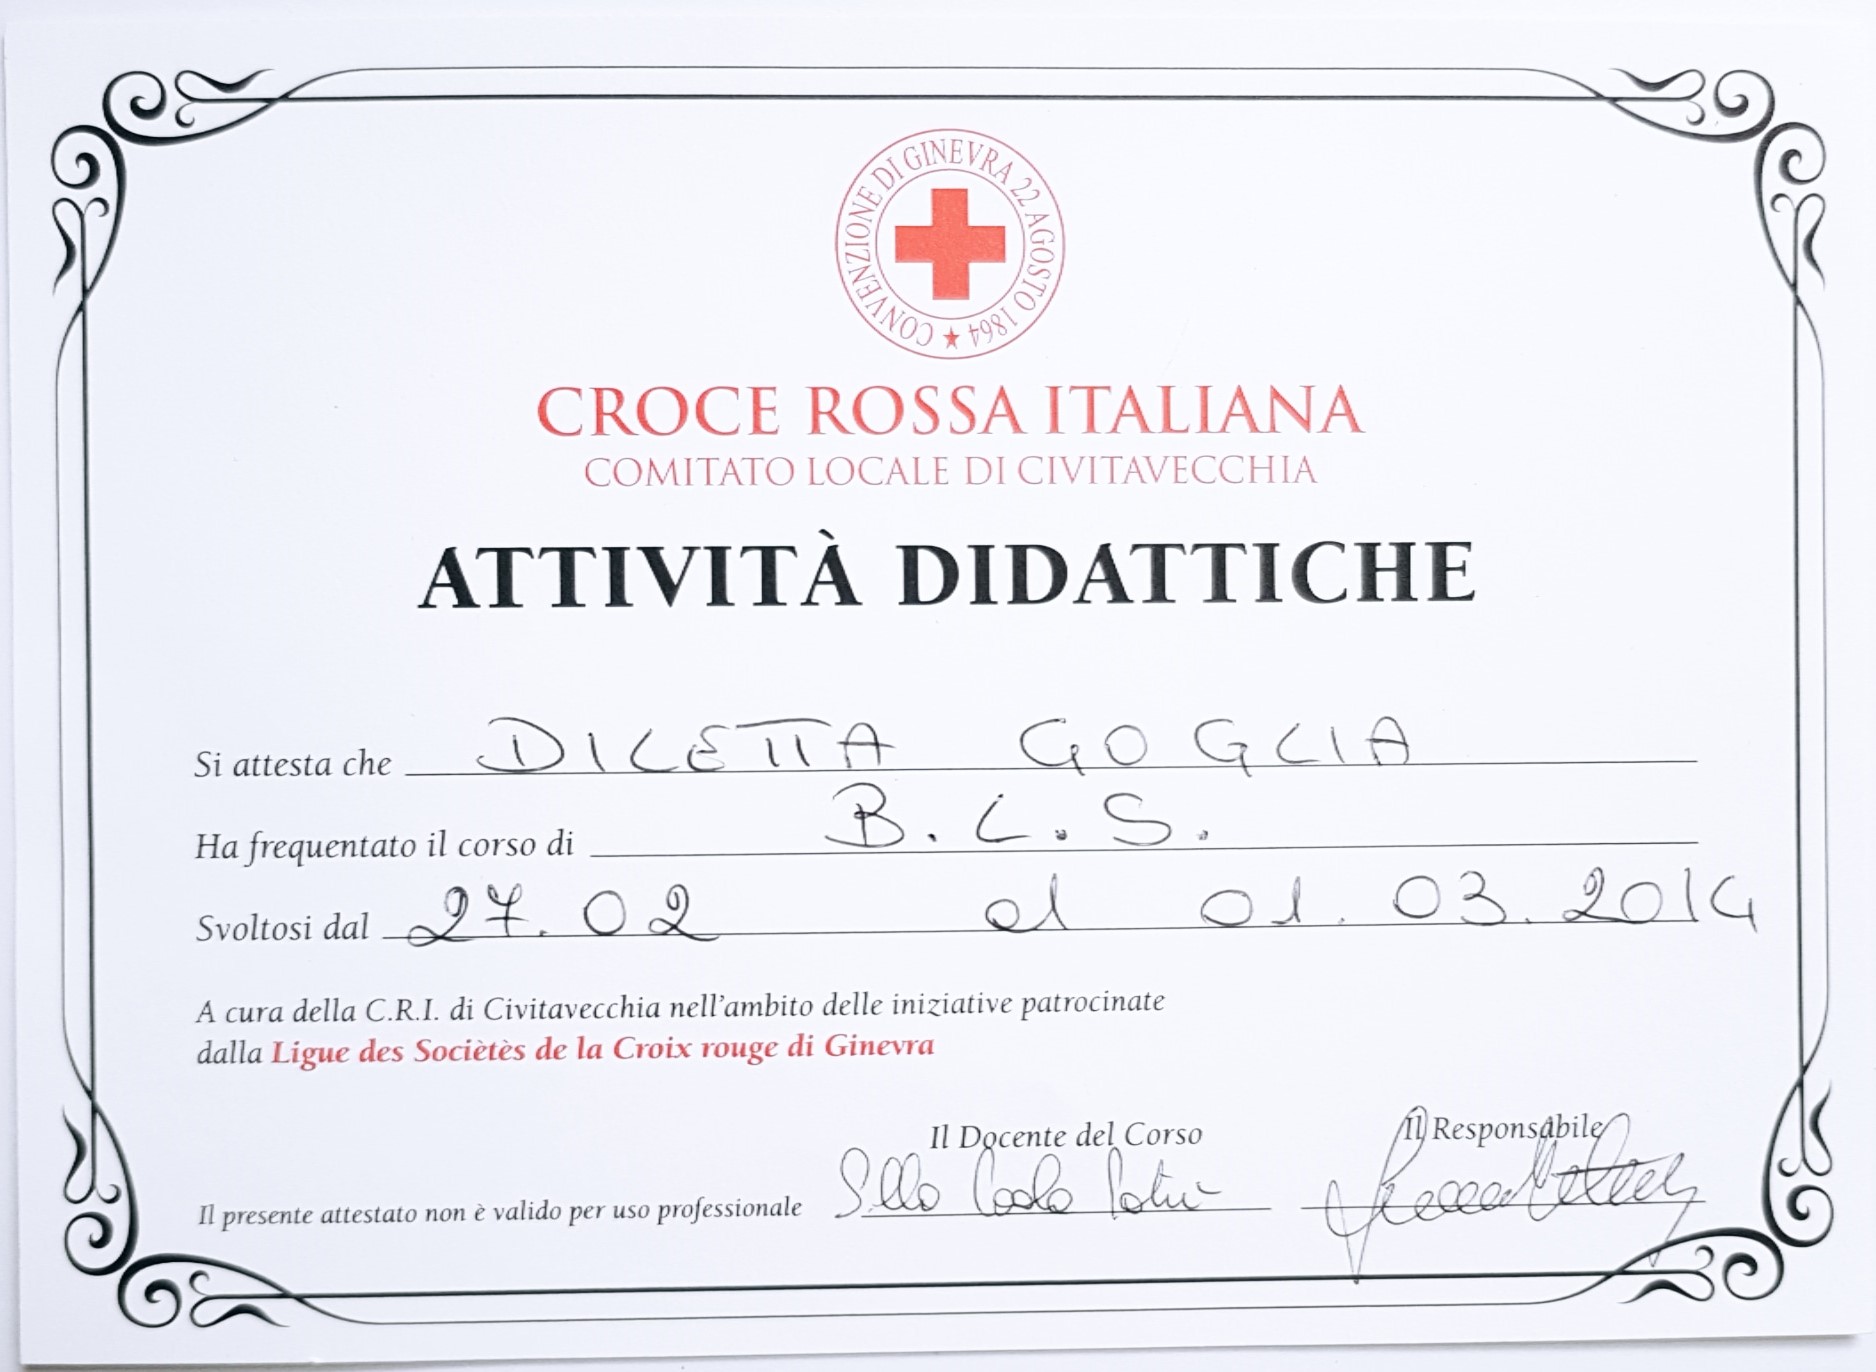 CONVENZIONE DI GINEVRA 22 AGOSTO 1864
CROCE ROSSA ITALIANA
COMITATO LOCALE DI CIVITAVECCHIA
ATTIVITÀ DIDATTICHE
Si attesta che DILETTA GOGLIA
Ha frequentato il corso di B.L.S.
Svoltosi dal 27.02 al 01.03.2014
A cura della C.R.I. di Civitavecchia nell'ambito delle iniziative patrocinate
dalla Ligue des Socìètès de la Croix rouge di Ginevra
Il Docente del Corso Il Responsabile
Il presente attestato non è valido per uso professionale